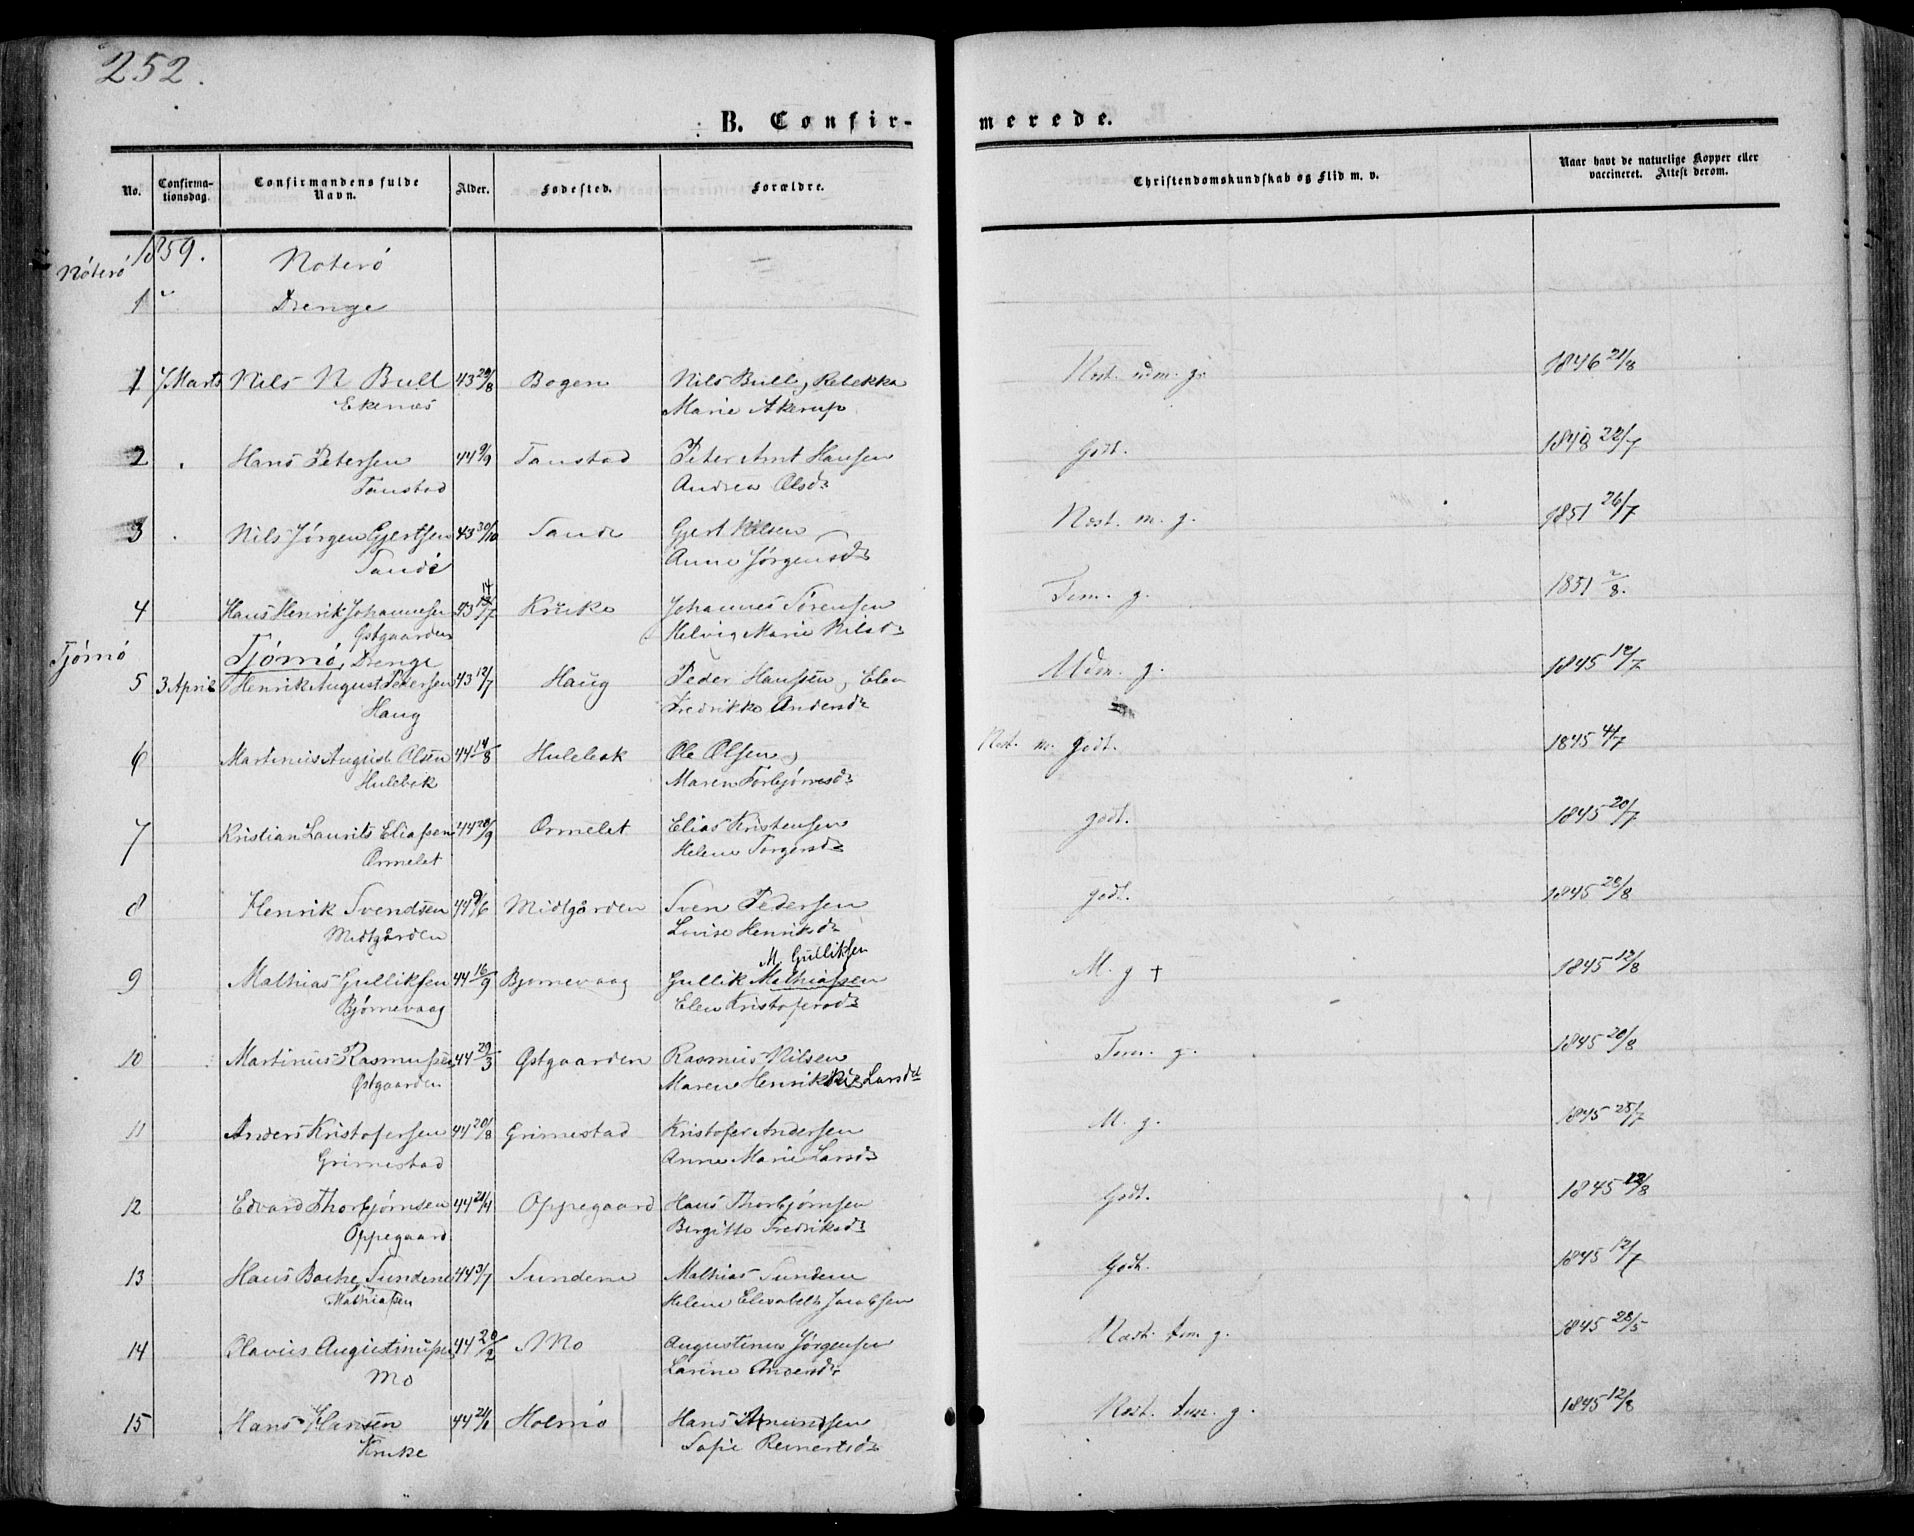 252.
B. Confirmerede.
No. Confirmationsdag. Confirmandens fulde Navn. Alder. Fødested. Forældre. Christendomskundskab og Flid m. v. Naar havt de naturlige Kopper eller vaccineret. Attest derom.
1859.
Nöterö Noterö
1 Drenge
1 7 Marts Nils N Bull 43 29/8 Bogen Nils Bull, Rebekka Næst. udm. g. 1846 21/8
Ekenæs Marie Akerup
2 Hans Petersen 44 9/9 Tanstad Peter Arnt Hansen godt. 1848 22/7
Tanstad Andrea Olsd.
3 Nils Jørgen Gjertsen 43 30/10 Sande Gjert Nilsen Næst. m. g. 1851 26/7
Sande Anne Jørgensd.
4 Hans Henrik Johannesen 43 14/7 Kruke Johannes Sørensen Tem. g. 1851 2/8.
Østgaarden Helvig Marie Nilsd.
Tjömö Tjömö, Drenge
5 3 April Henrik August Pedersen 43 12/7 Haug Peder Hanssen, Elen Udm. g. 1845 12/7
Haug Fredrikke Andersd.
6 Martinus August Olsen 44 14/8 Hulebak Ole Olsen, Næst. m. godt. 1845 4/7
Hulebak Maren Torbjørnsd.
7 Kristian Laurits Eliassen 44 28/9 Ormelet Elias Kristensen godt. 1845 20/7
Ormelet Helene Torgersd.
8 Henrik Svendsen 44 9/6 Midtgården Sven Pedersen godt. 1845 28/8
Midtgården Lovise Henriksd.
M. Gulliksen
9 Mathias Gulliksen 44 16/9 Bjørnevaag Gullik Mathiassen M. g + 1845 12/8
Bjørnevaag Elen Kristofersd.
10 Martinus Rasmussen 44 29/3 Østgaarden Rasmus Nilsen Tem. g. 1845 20/8
Østgaarden Maren Henrikke Larsd.
11 Anders Kristofersen 44 20/8 Grimestad Kristofer Andersen M. g. 1845 25/7
Grimestad Anne Marie Larsd.
12 Edvard Thorbjørnsen 44 21/4 Oppegaard Hans Thorbjørnsen Godt. 1845 12/8
Oppegaard Bergitte Fredriksd.
13 Hans Bache Sundene 44 3/7 Sundene Mathias Sundene Godt. 1845 12/7
Mathiassen Helene Elisabeth Jacobsen
14 Olavus Augustinussen 44 20/2 Mo Augustinus Jørgensen Næst. tem. g. 1845 28/5
Mo Larine Andersd.
15 Hans Hansen 44 21/1 Holmö Hans Amundsen Næst. tem. g. 1845 12/8
Kruke Sofie Reinertsd.